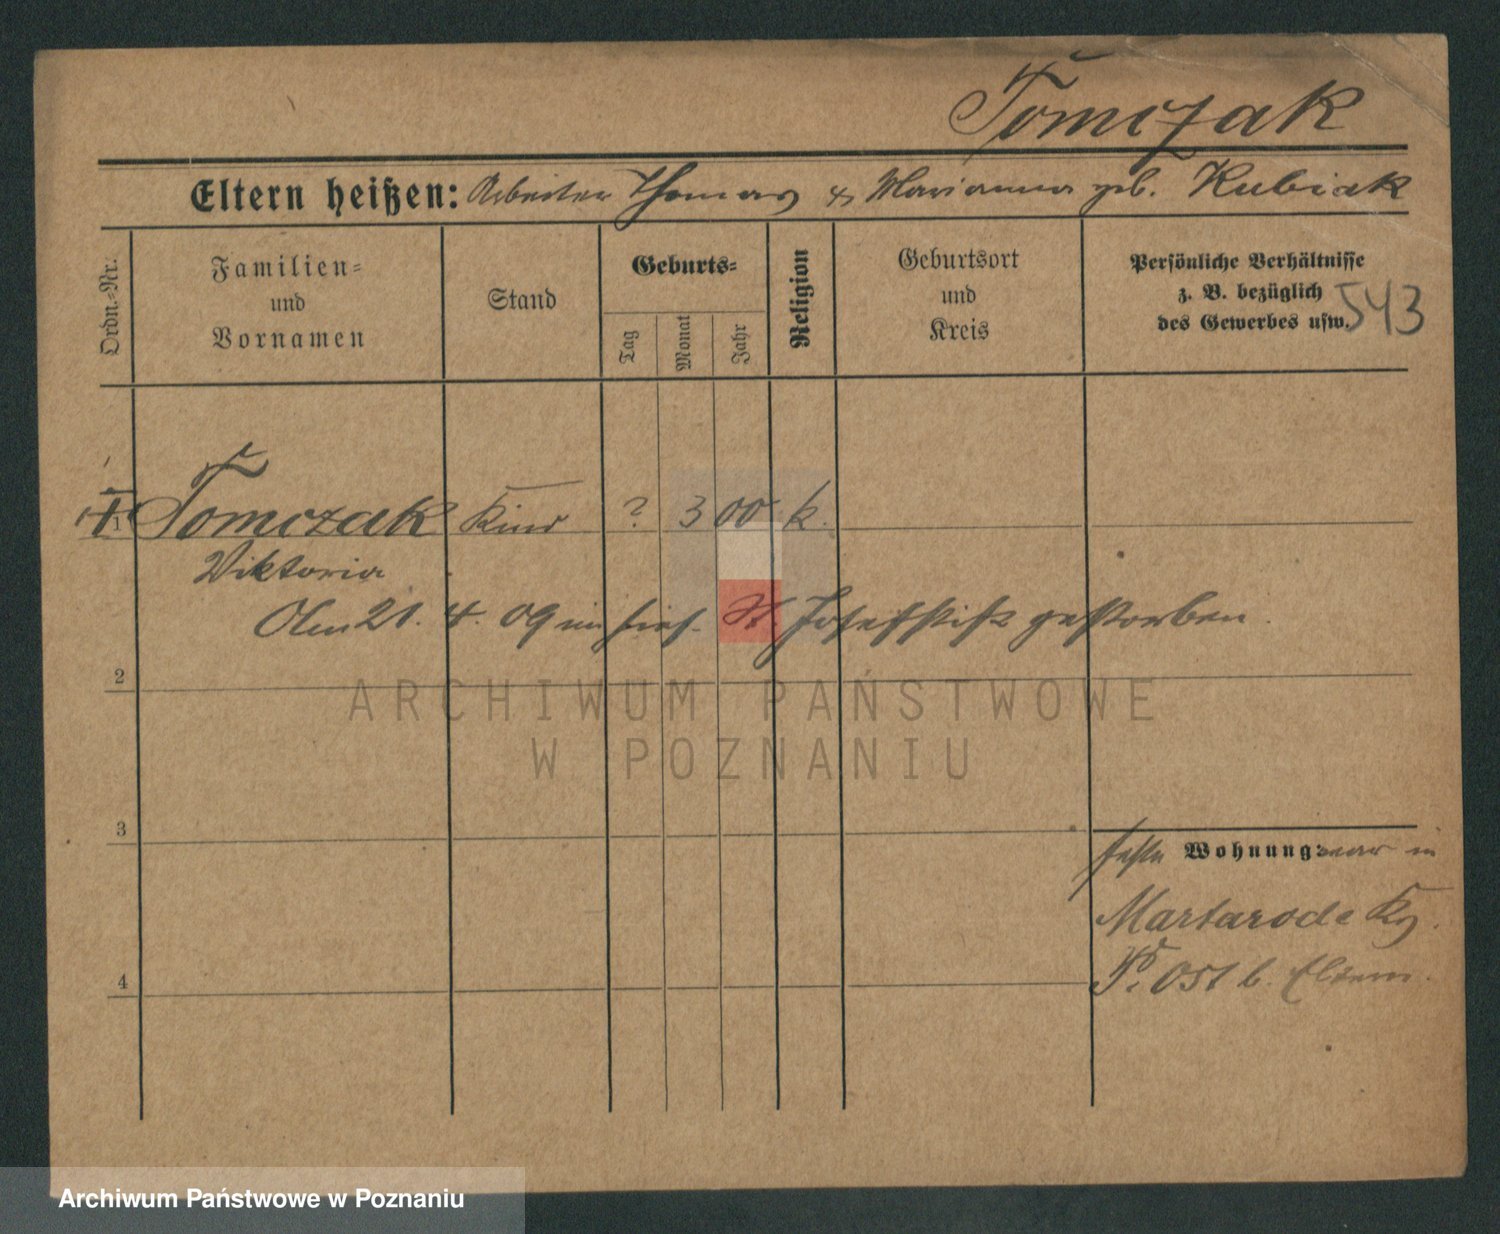 Tomczak
Eltern heißen: Arbeiter Thomas & Marianna geb. Kubiak
Ordn.=Nr.
Familien=
und
Vornamen
Stand
Geburts=
Tag
Monat
Jahr
Religion
Geburtsort
und
Kreis
Persönliche Verhältnisse
z. B. bezüglich
des Gewerbes usw.
543
1 Tomczak Kind ? 3 00 k.
Viktoria
Am 21. 4. 09 im hies. St. Josefstift gestorben.
2
3
feste Wohnung: war in
Martarode Krs.
P. Ost b. Eltern.
4
ARCHIWUM PAŃSTWOWE
W POZNANIU
Archiwum Państwowe w Poznaniu